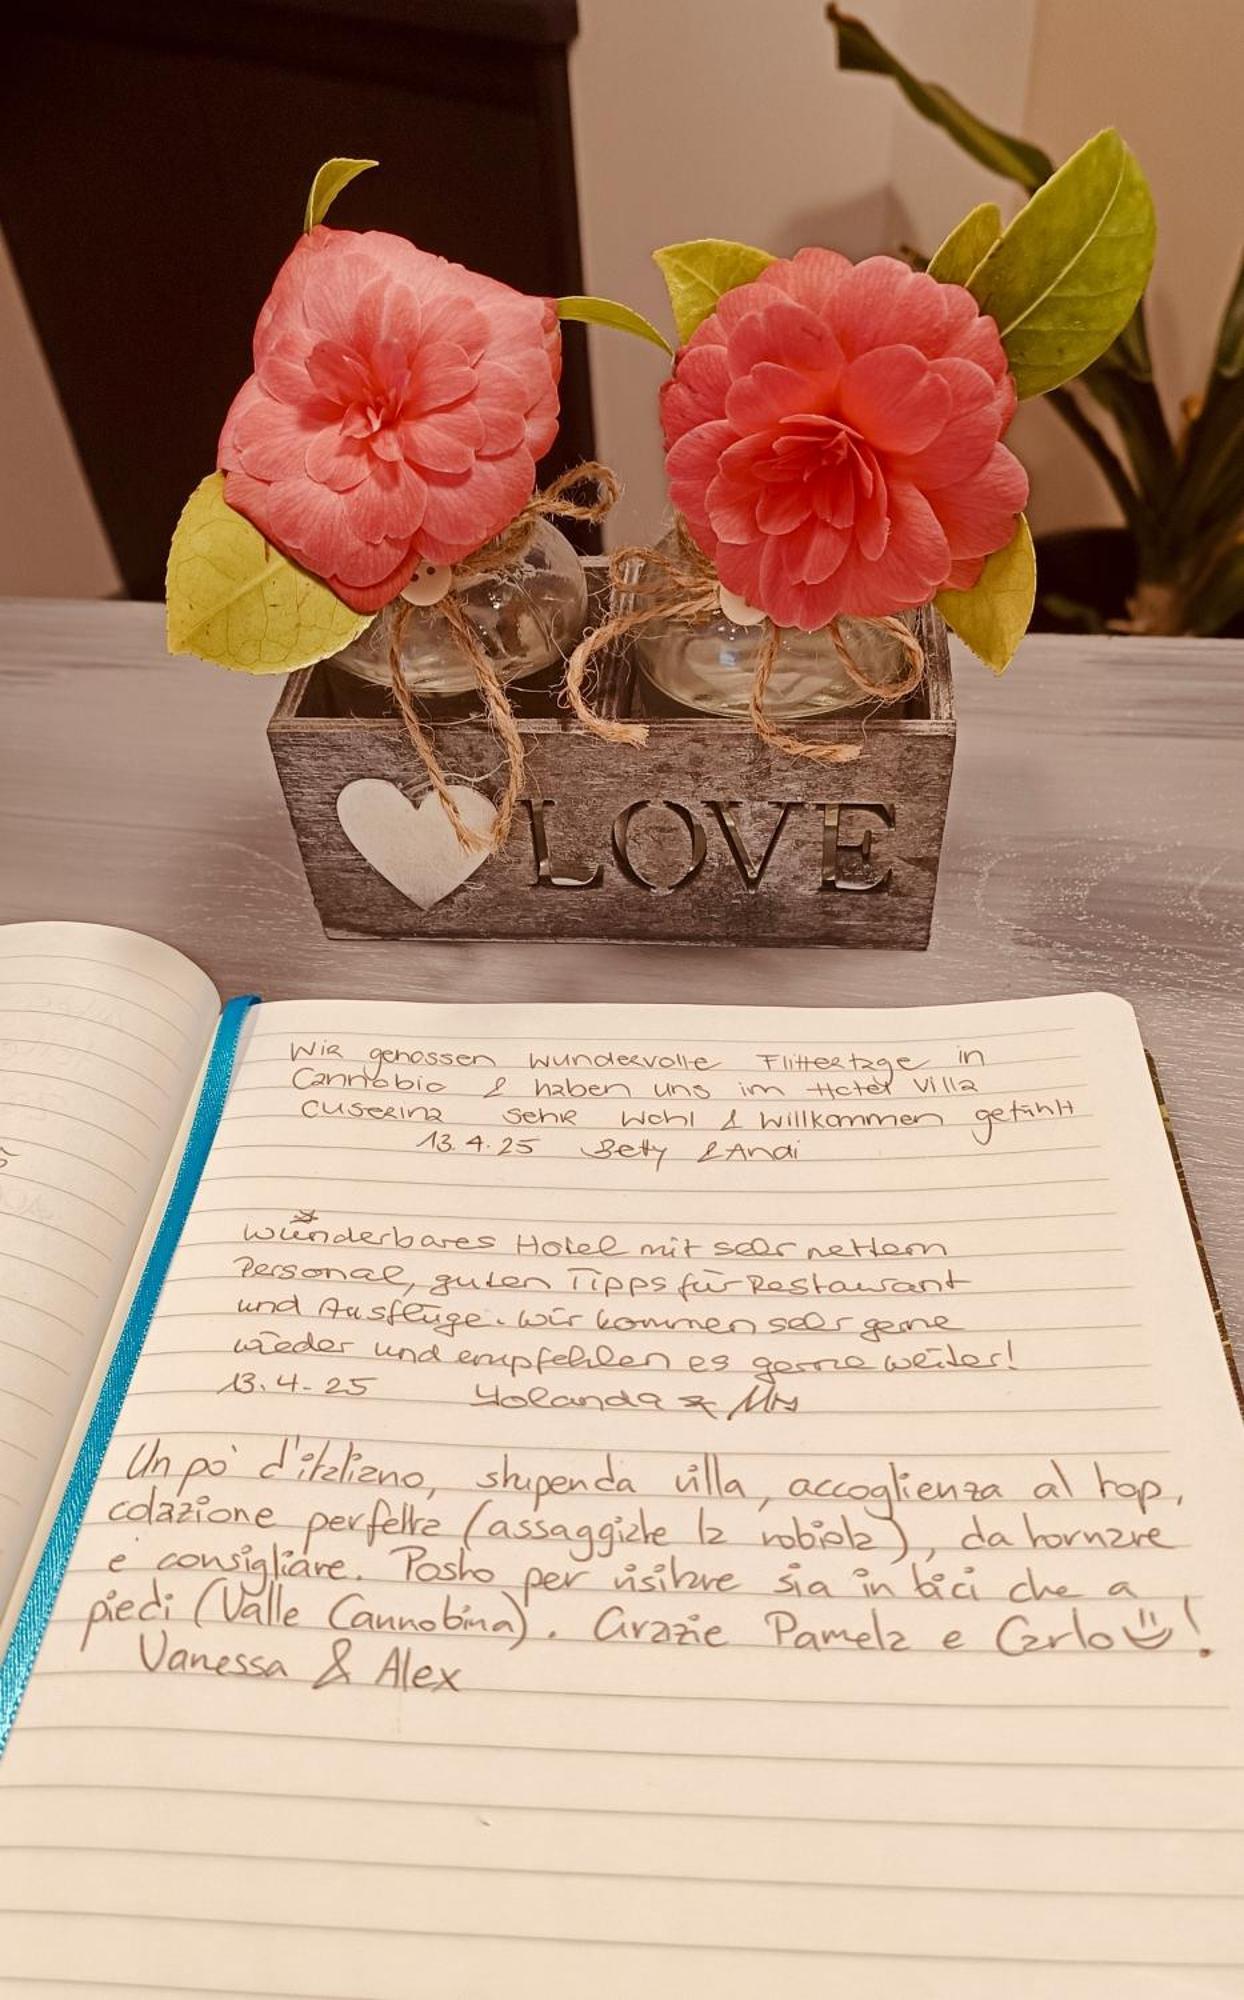 LOVE
Wir genossen wundervolle Flittertage in
Cannobio & haben uns im Hotel Villa
Cuserina sehr wohl & willkommen gefühlt
13.4.25 Betty & Andi
wunderbares Hotel mit sehr nettem
Personal, guten Tipps für Restaurant
und Ausflüge. wir kommen sehr gerne
wieder und empfehlen es gerne weiter!
13.4.25 Yolanda &
Un po' d'italiano, stupenda villa, accoglienza al top,
colazione perfetta (assaggiate la robiola), da tornare
e consigliare. Posto per visitare sia in bici che a
piedi (Valle Cannobina). Grazie Pamela e Carlo !
Vanessa & Alex